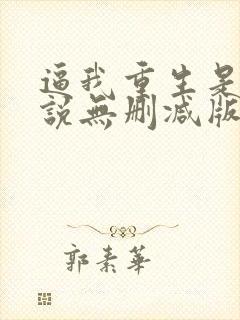 逼我重生是
説無删减版
郭素華